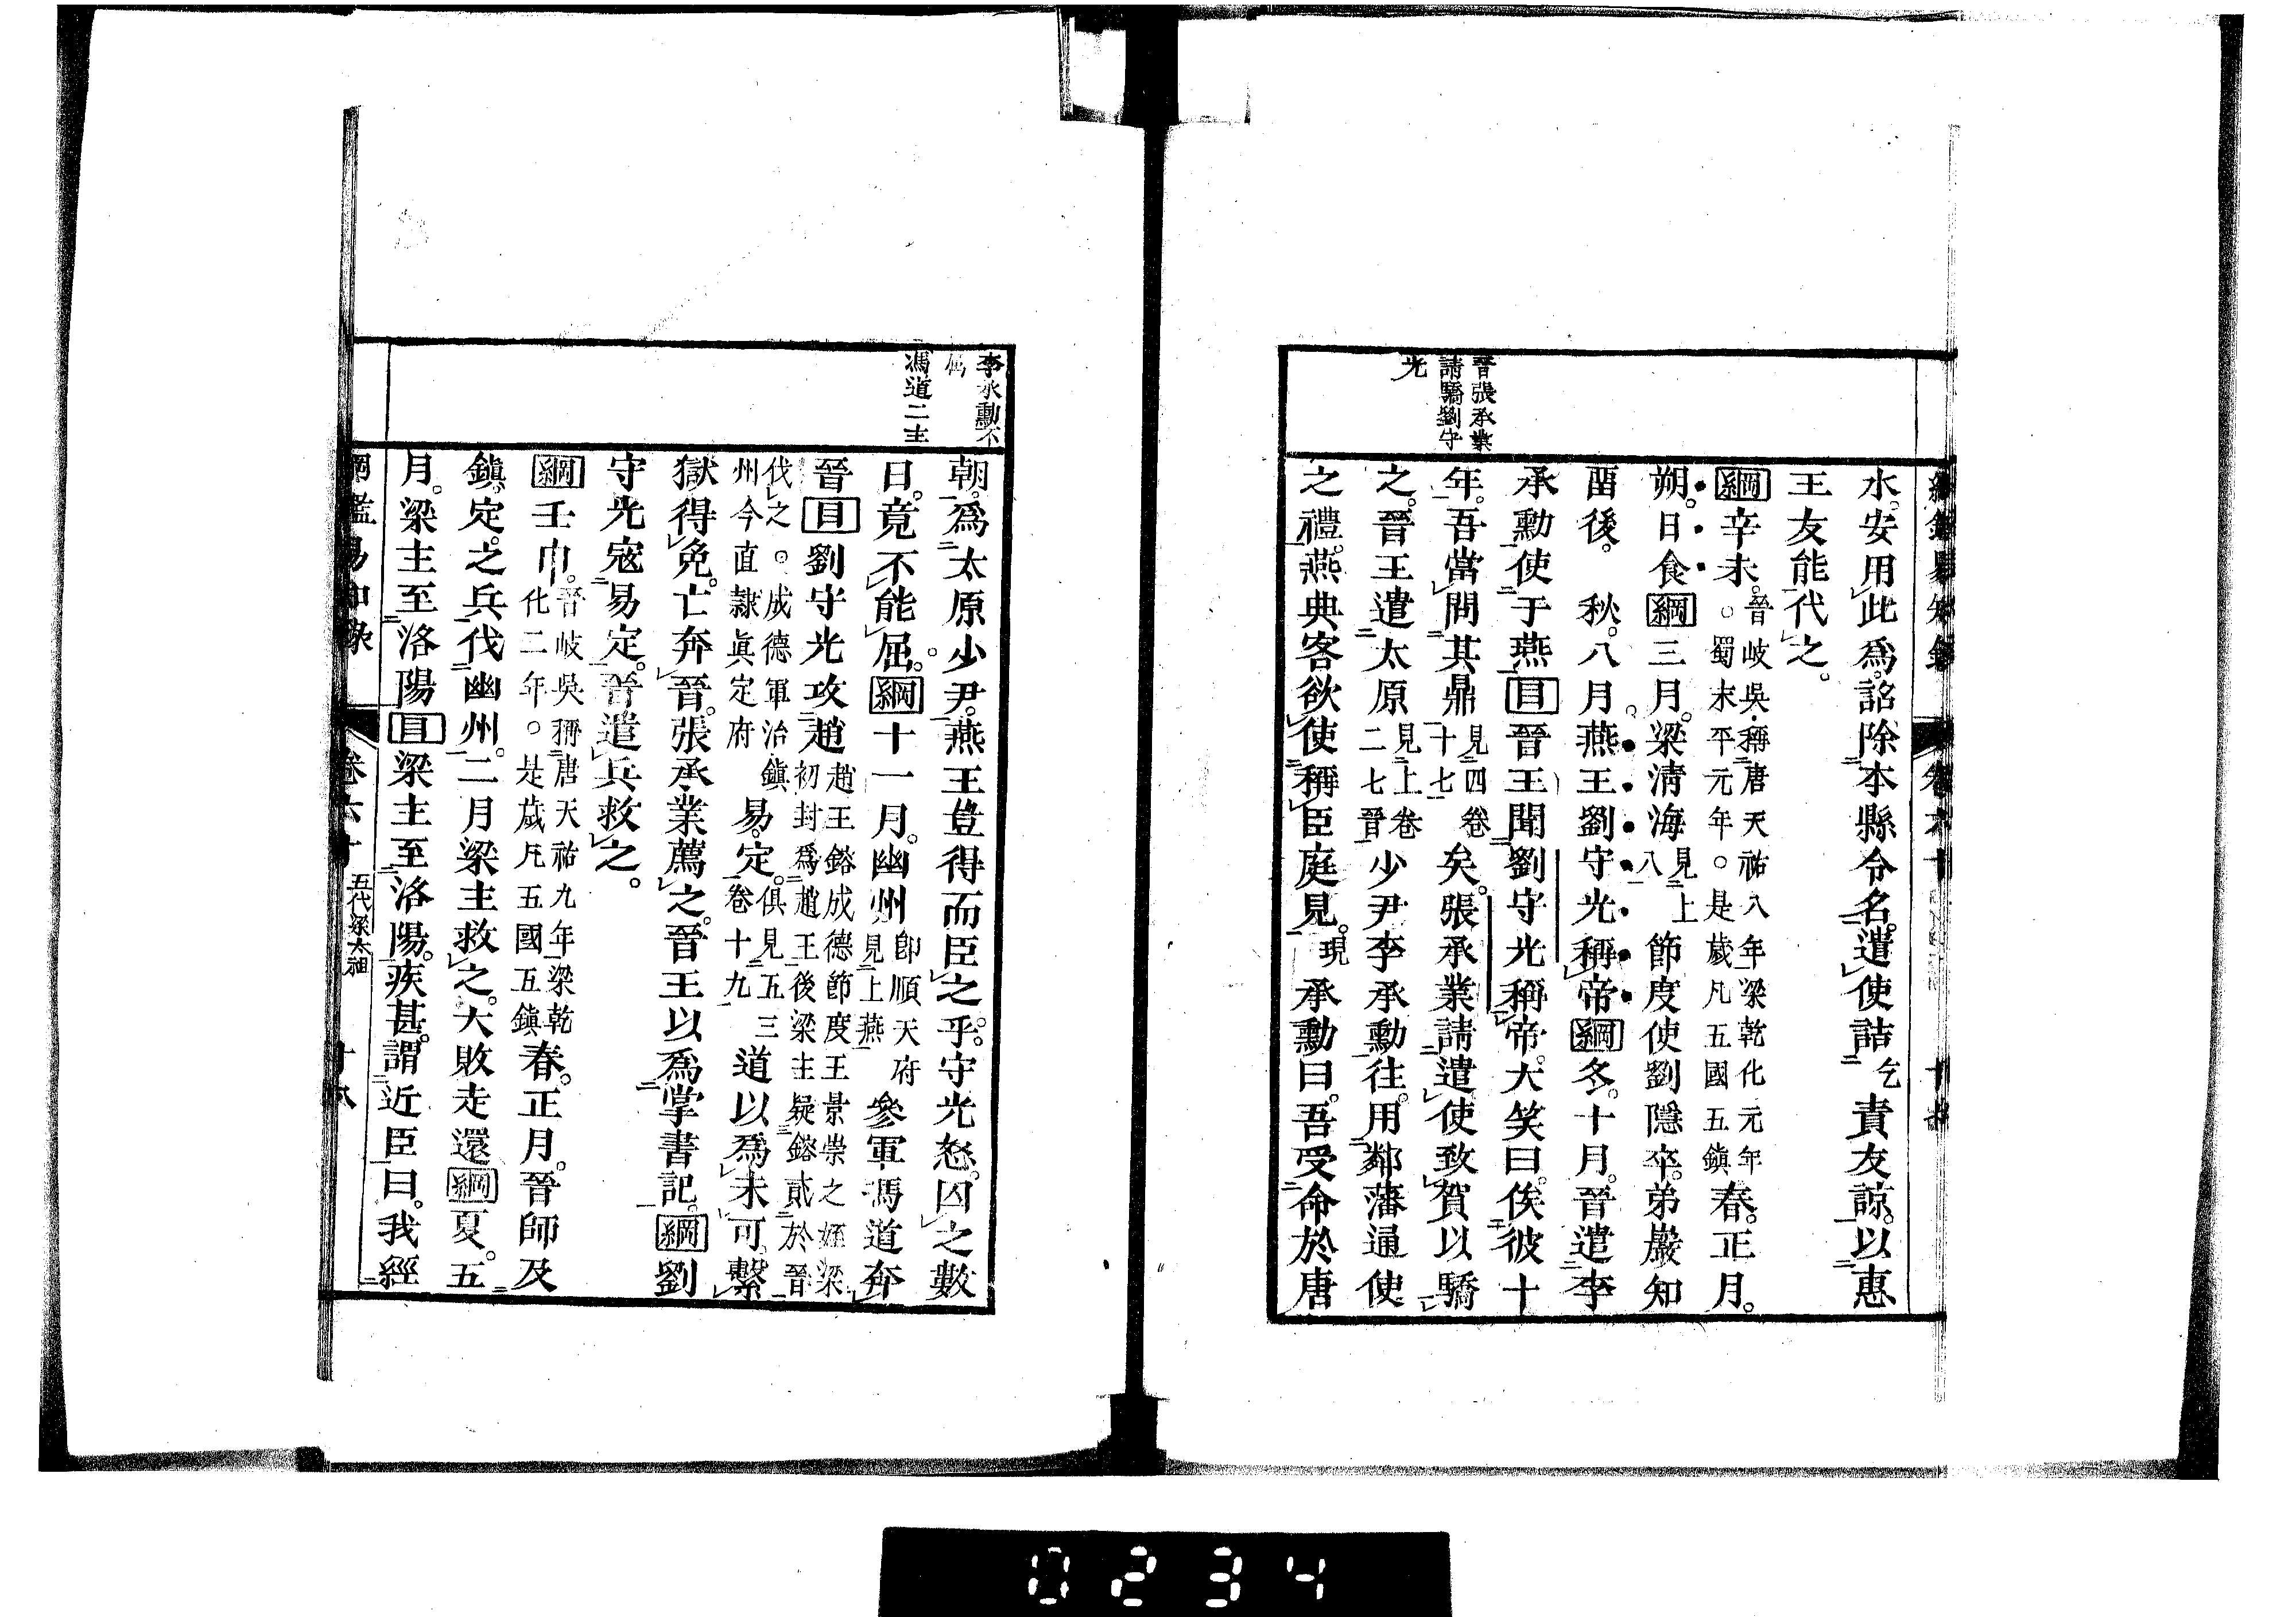 晉張承業
請驕劉守
光
水。安用此爲。詔除本縣令名。遣使詰乞責友諒。以惠
王友能代之。
綱辛未。晉岐吳稱唐天祐八年梁乾化元年
。蜀永平元年。是歲凡五國五鎮春。正月。
朔。日食綱三月。梁清海見上
八節度使劉隱卒。弟巖知
畱後。秋。八月。燕王劉守光稱帝綱冬。十月。晉遣李
承勳使于燕目晉王聞劉守光稱帝。大笑曰。俟彼十
年。吾當問其鼎見四卷
十七矣。張承業請遣使致賀以驕
之。晉王遣太原見上卷
二七晉少尹李承勳往。用鄰藩通使
之禮。燕典客欲使稱臣庭見。現承勳曰。吾受命於唐
李承勳不
屈
馮道二主
朝。爲太原少尹。燕王豈得而臣之乎。守光怒。囚之數
日。竟不能屈。綱十一月。幽州卽順天府
見上燕參軍馮道奔
晉目劉守光攻趙趙王鎔成德節度王景崇之姪梁
初封爲趙王後梁主疑鎔貳於晉
伐之。成德軍治鎮
州今直隸眞定府易。定。俱見五三
卷十九道以爲未可。繫
獄得免。亡奔晉。張承業薦之。晉王以爲掌書記。綱劉
守光寇易定。晉遣兵救之。
綱壬申。晉岐吳稱唐天祐九年梁乾
化二年。是歲凡五國五鎮春。正月。晉師及
鎮。定。之兵伐幽州。二月梁主救之。大敗走還綱夏。五
月。梁主至洛陽目梁主至洛陽。疾甚。謂近臣曰。我經
綱鑑易知錄
卷六十
五代梁太祖
十八
0234